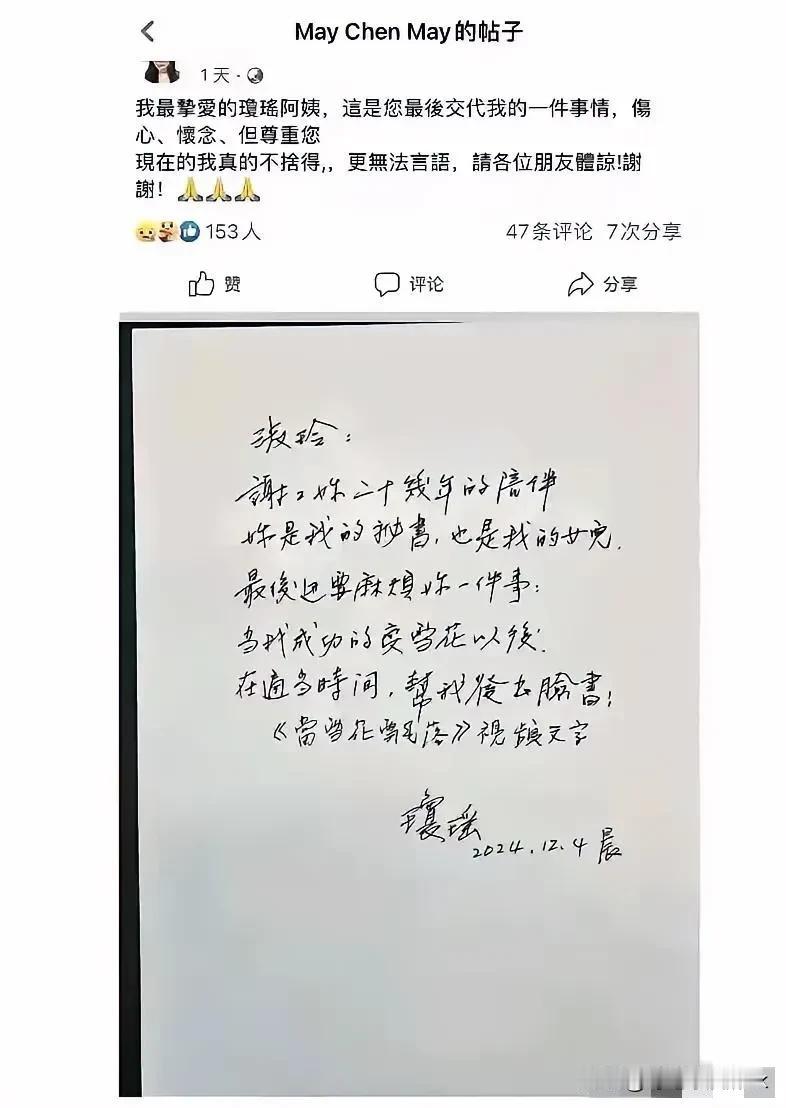 May Chen May的帖子
1天 ·
我最摯愛的瓊瑤阿姨，這是您最後交代我的一件事情，傷
心、懷念、但尊重您
現在的我真的不捨得,，更無法言語，請各位朋友體諒!謝
謝！🙏🙏🙏
153人 47条评论 7次分享
赞 评论 分享
淑玲：
謝謝妳二十幾年的陪伴
妳是我的秘書，也是我的女兒.
最後还要麻煩妳一件事：
当我成功的变雪花以後.
在適当時間，幫我發出臉書！
《當雪花飄落》視頻文字
瓊瑶
2024.12.4 晨